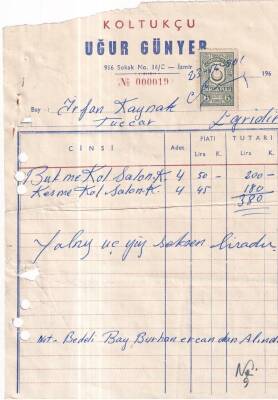 KOLTUKÇU
UĞUR GÜNYER
956 Sokak No. 16/C — İzmir
№ 000019
196
Bay : İrfan Kaynak
Tuccar Egridir
CİNSİ Adet FİATI TUTARI
Lira K. Lira K.
Bukme Kol Salon K. 4 50 - 200 -
Kesme Kol Salon K. 4 45 180
380
Yalnız üç yüz seksen liradır.
Not - Bedeli Bay Burhan ercan dan Alındı